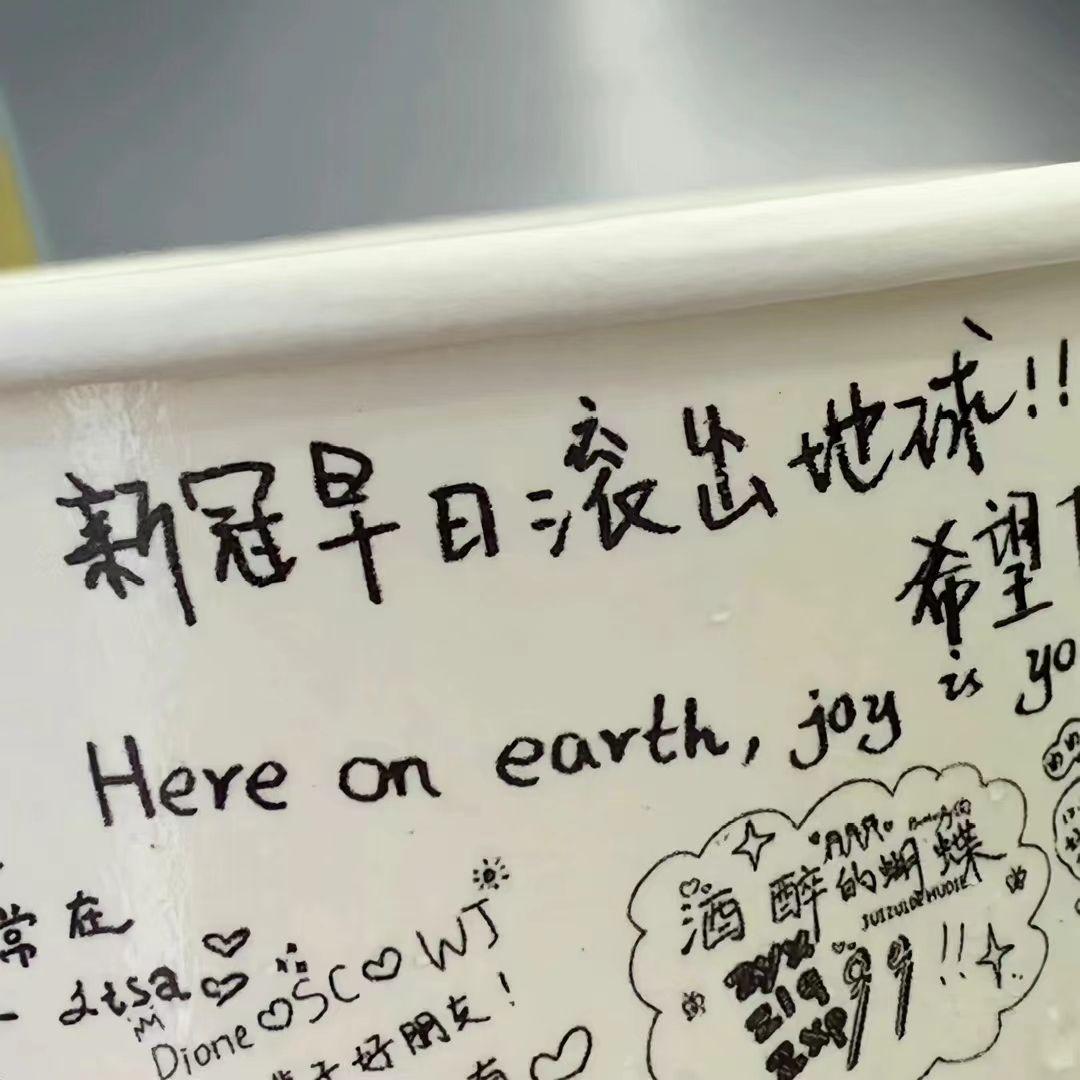 新冠早日滚出地球!!
希望
Here on earth, joy is yo
常在
itsa
Dione♡SC♡WJ
好朋友!
有
酒醉的蝴蝶
JUIZUIDEHUDIE
99!!